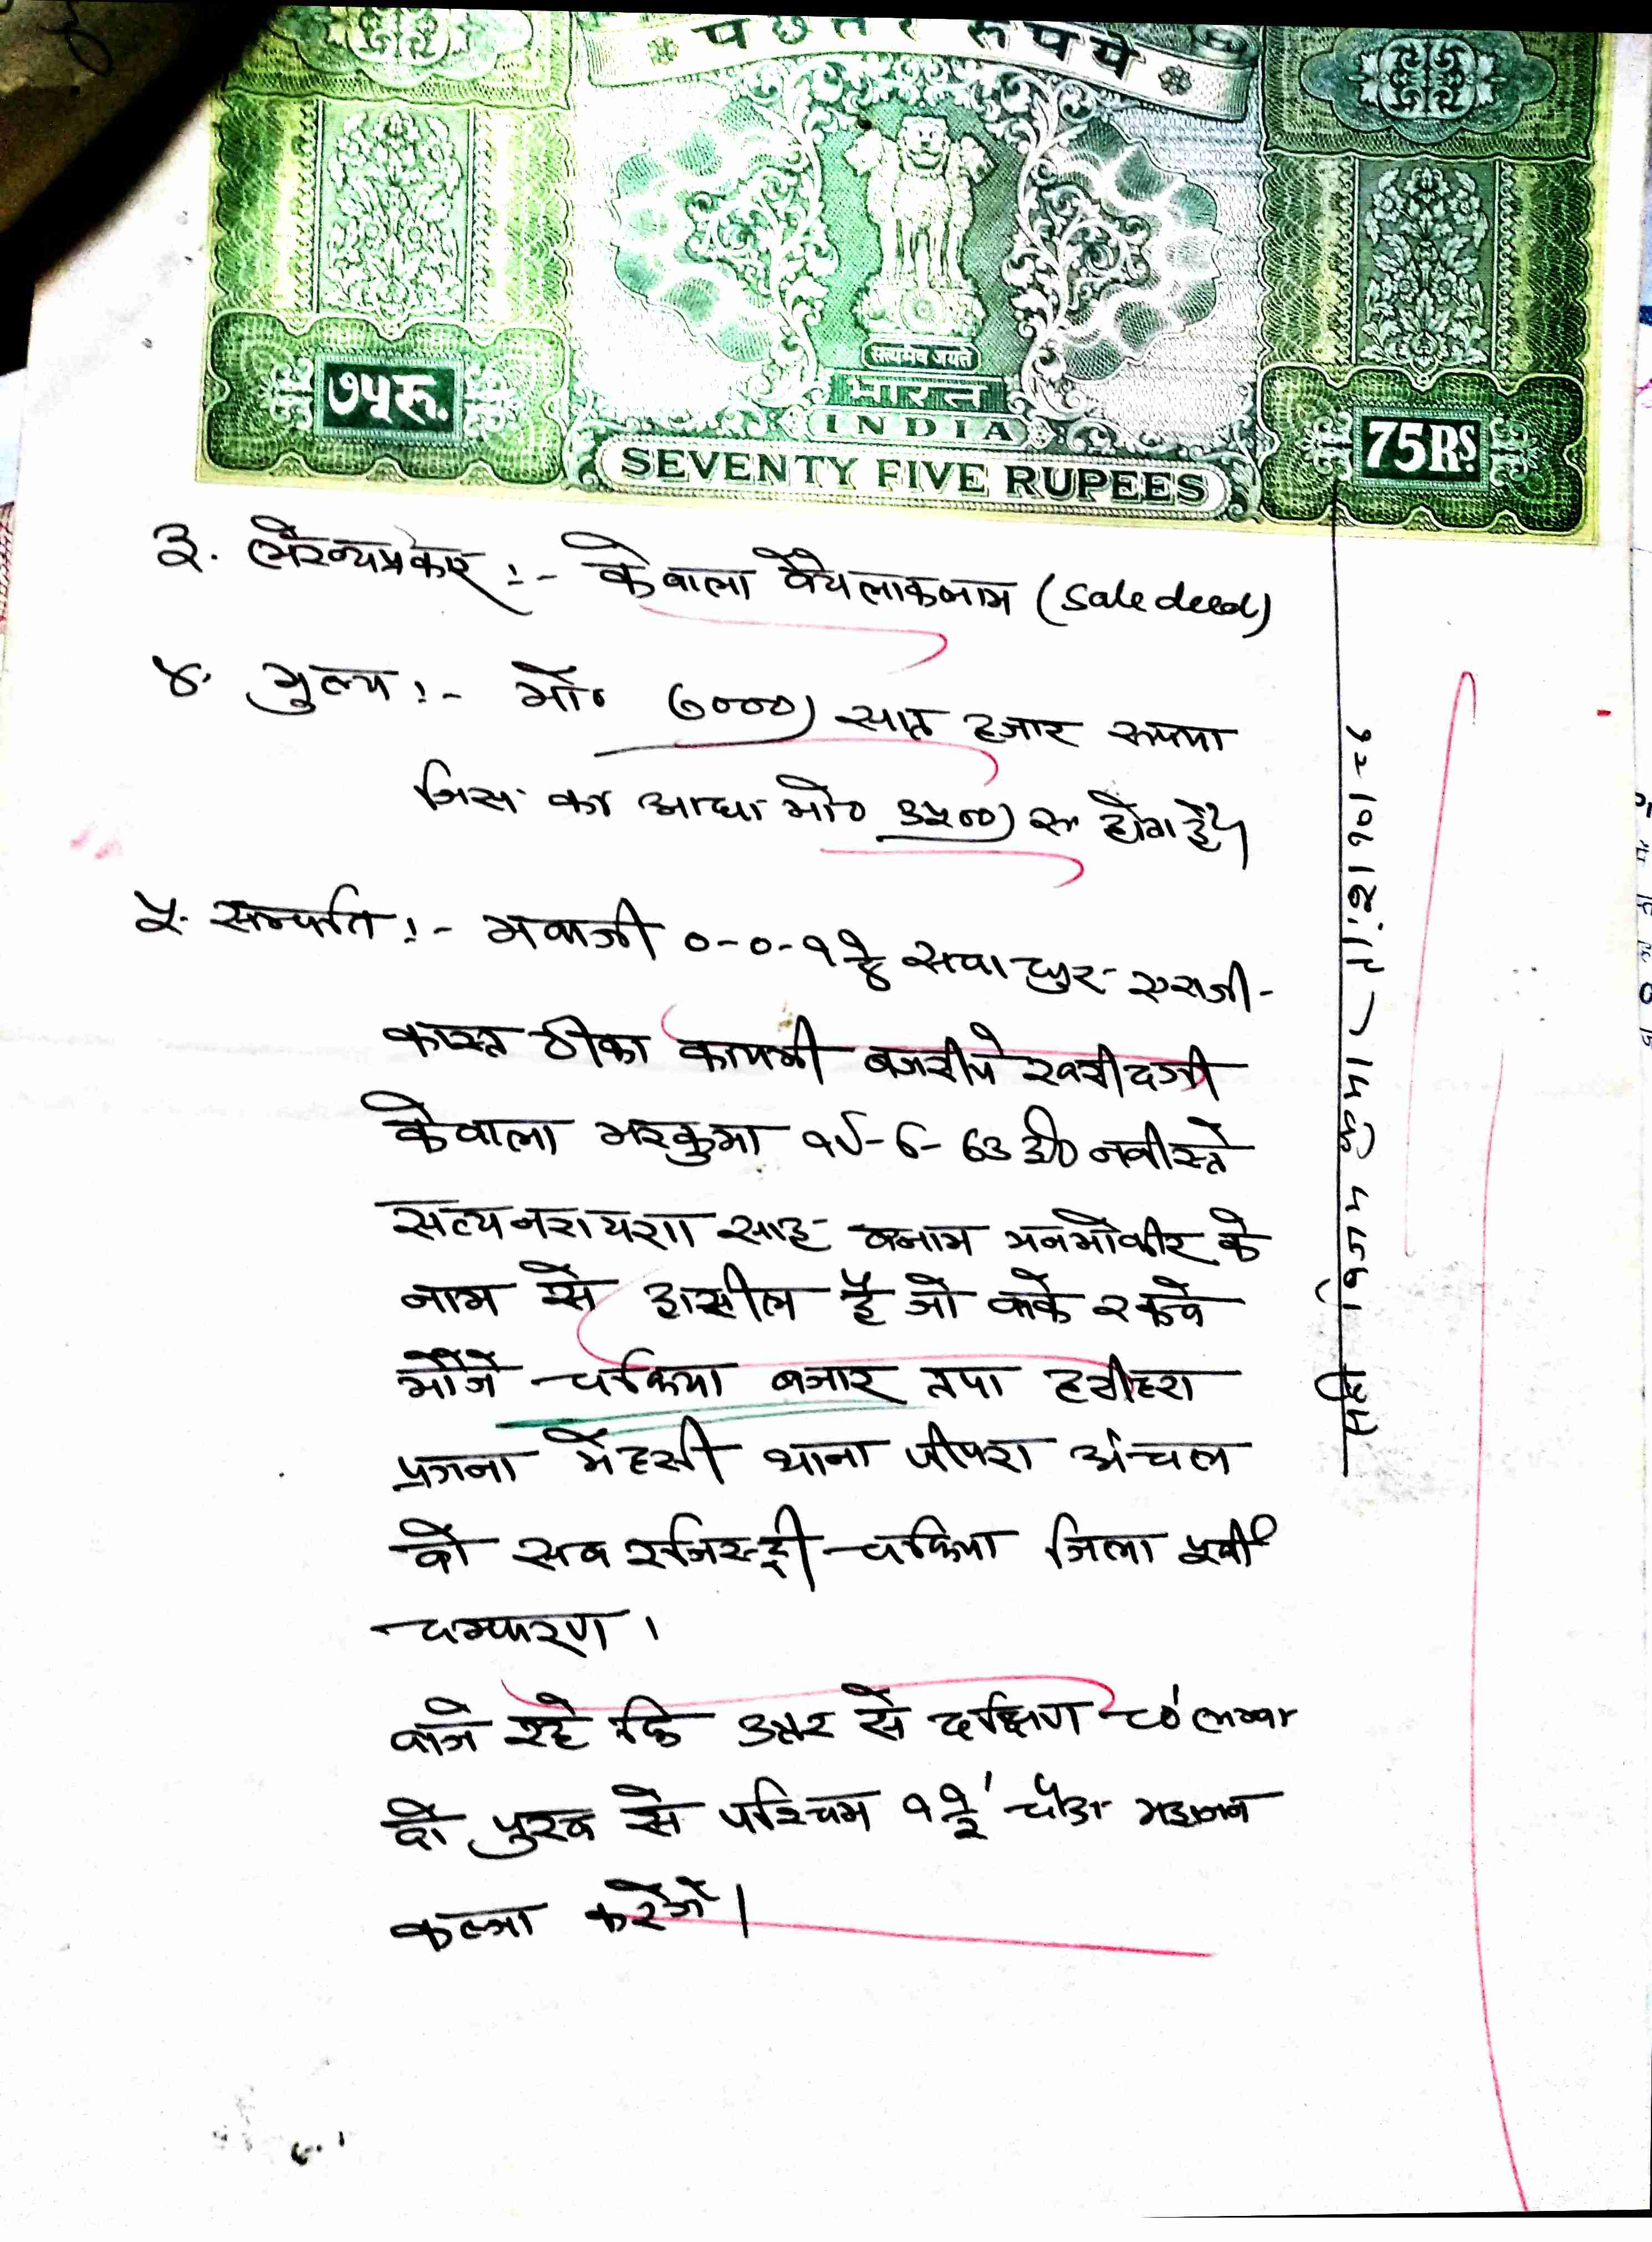 पचहत्तर रुपये
सत्यमेव जयते
भारत
INDIA
७५रु.
75RS.
SEVENTY FIVE RUPEES
३. लेख्यप्रकार :- केवाला वैयलाकलाम (Sale deed)
४. मुल्य :- मो० ७०००) सात हजार रूपया
जिस का आधा मो० ३५००) रू होता है।
५. सम्पति :- मवाजी ०-०-१ १/४ सवा धुर एराजी-
कास्त ठीका कायमी बजरीये खरीदगी
केवाला मरकुमा १५-6-63 ई० नवीस्ते
सत्यनरायण साह बनाम मनमोकीर के
नाम से हासील है जो वाके रकवे
मौजे चकिया बजार तपा हवीहरा
प्रगना मेहसी थाना पीपरा अंचल
वो सब रजिस्ट्री चकिया जिला पूर्वी
चम्पारण ।
वाजे रहे कि उत्तर से दक्षिण ८०' लम्बा
वो पुरब से पश्चिम १ १/२' चौडा
कब्जा करेंगे।
सही विजय कुमार ता: २१।१०।८६